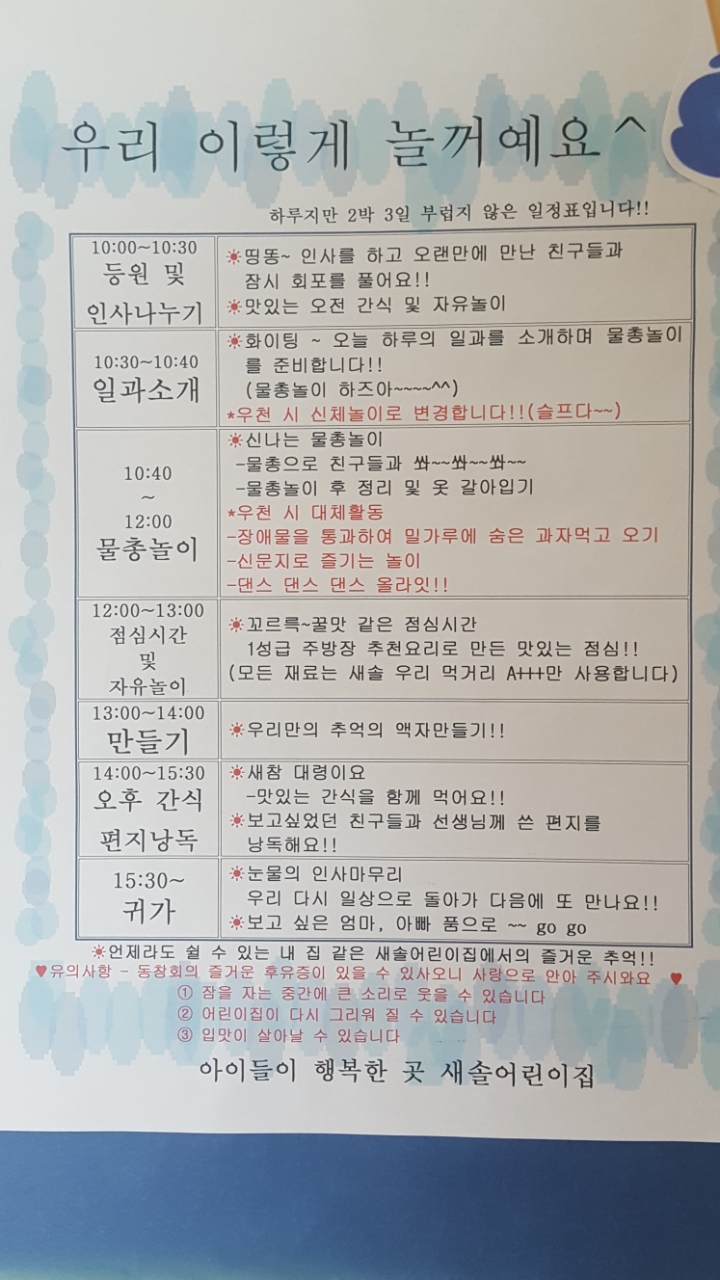 우리 이렇게 놀꺼예요^
하루지만 2박 3일 부럽지 않은 일정표입니다!!
10:00~10:30
등원 및
인사나누기
☀띵똥~ 인사를 하고 오랜만에 만난 친구들과
잠시 회포를 풀어요!!
☀맛있는 오전 간식 및 자유놀이
10:30~10:40
일과소개
☀화이팅 ~ 오늘 하루의 일과를 소개하며 물총놀이
를 준비합니다!!
(물총놀이 하즈아~~~~^^)
*우천 시 신체놀이로 변경합니다!!(슬프다~~)
10:40
~
12:00
물총놀이
☀신나는 물총놀이
-물총으로 친구들과 쏴~~쏴~~쏴~~
-물총놀이 후 정리 및 옷 갈아입기
*우천 시 대체활동
-장애물을 통과하여 밀가루에 숨은 과자먹고 오기
-신문지로 즐기는 놀이
-댄스 댄스 댄스 올라잇!!
12:00~13:00
점심시간
및
자유놀이
☀꼬르륵~꿀맛 같은 점심시간
1성급 주방장 추천요리로 만든 맛있는 점심!!
(모든 재료는 새솔 우리 먹거리 A+++만 사용합니다)
13:00~14:00
만들기
☀우리만의 추억의 액자만들기!!
14:00~15:30
오후 간식
편지낭독
☀새참 대령이요
-맛있는 간식을 함께 먹어요!!
☀보고싶었던 친구들과 선생님께 쓴 편지를
낭독해요!!
15:30~
귀가
☀눈물의 인사마무리
우리 다시 일상으로 돌아가 다음에 또 만나요!!
☀보고 싶은 엄마, 아빠 품으로 ~~ go go
☀언제라도 쉴 수 있는 내 집 같은 새솔어린이집에서의 즐거운 추억!!
♥유의사항 - 동창회의 즐거운 후유증이 있을 수 있사오니 사랑으로 안아 주시와요 ♥
① 잠을 자는 중간에 큰 소리로 웃을 수 있습니다
② 어린이집이 다시 그리워 질 수 있습니다
③ 입맛이 살아날 수 있습니다
아이들이 행복한 곳 새솔어린이집